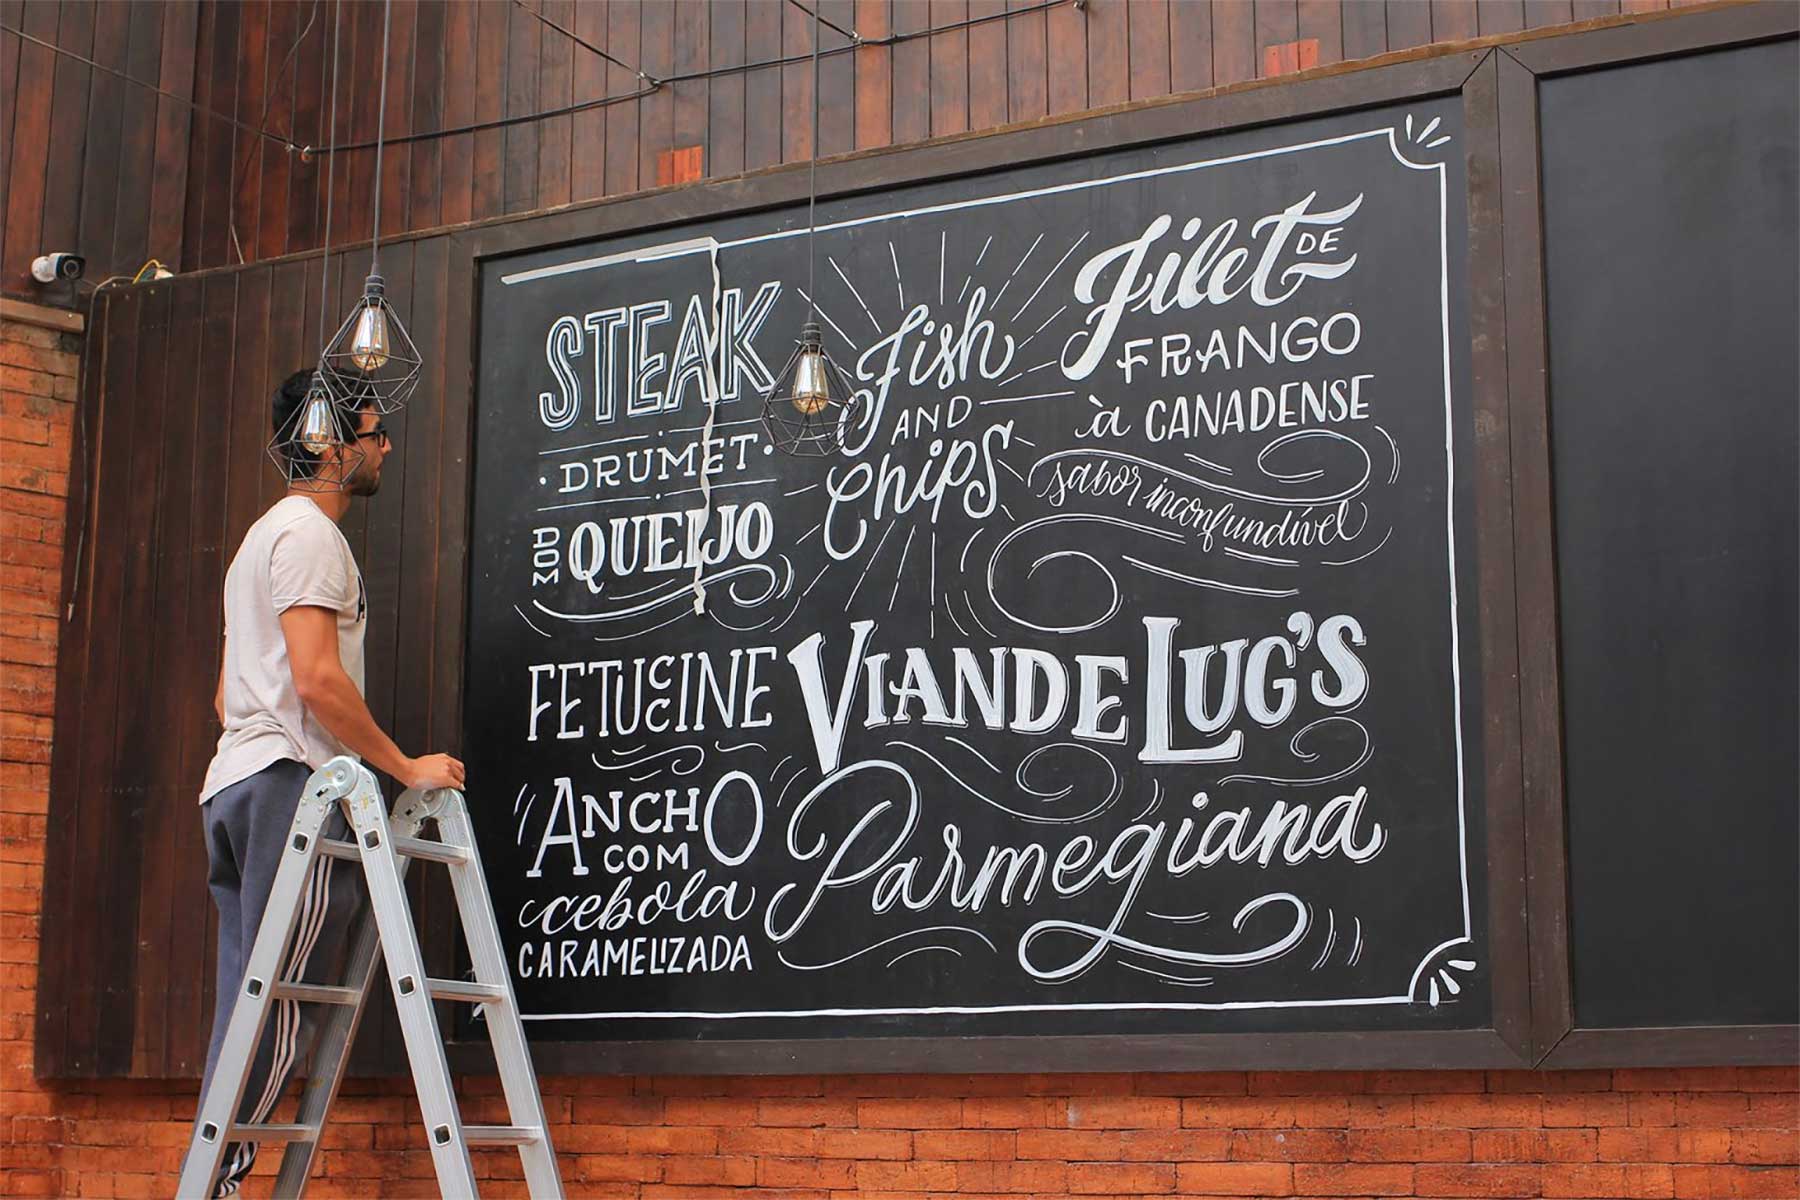 STEAK
· DRUMET ·
COM QUEIJO
Fish
AND
Chips
Filet DE
FRANGO
à CANADENSE
sabor inconfundível
FETUCCINE
VIANDE LUG'S
ANCHO
COM
cebola
CARAMELIZADA
Parmegiana